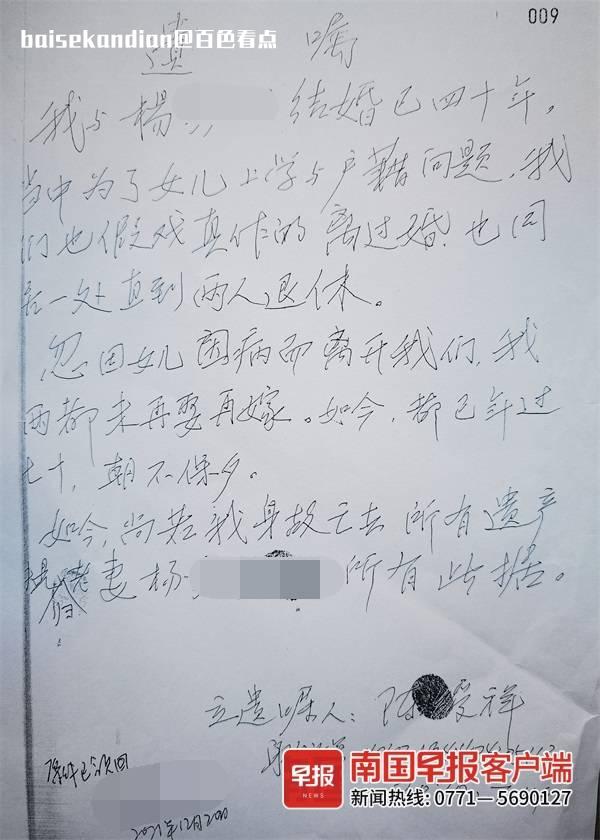 baisekandian@百色看点
009
遗 嘱
我与杨 结婚已四十年,
当中为了女儿上学与户籍问题,我
们也假戏真作的离过婚.也同
居一处直到两人退休。
忽因女儿因病而离开我们,我
两都未再娶再嫁。如今,都已年过
七十,朝不保夕。
如今,尚若我身故亡去所有遗产
归老妻杨 所有此据。
立遗嘱人:陈 受祥
原件已收回
2021年12月20日
早报 NEWS 南国早报客户端
新闻热线:0771—5690127